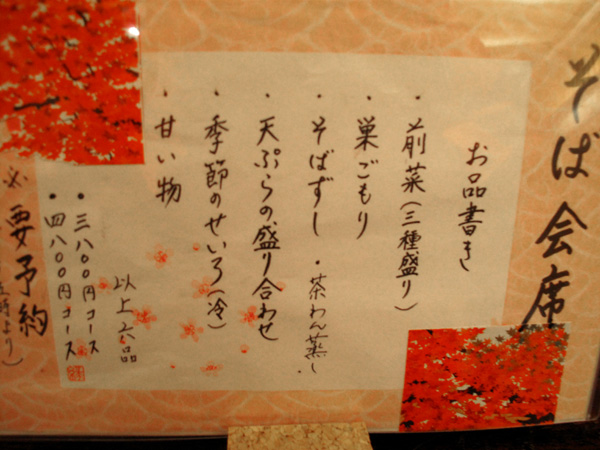 そば会席
お品書き
・前菜(三種盛り)
・巣ごもり
・そばずし・茶わん蒸し
・天ぷらの盛り合わせ
・季節のせいろ(冷)
・甘い物
以上六品
・三八〇〇円コース
・四八〇〇円コース
※要予約
時より)